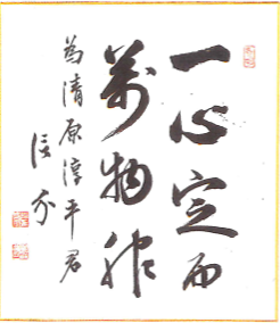 一心定而
萬物服
為清原淳平君
信介